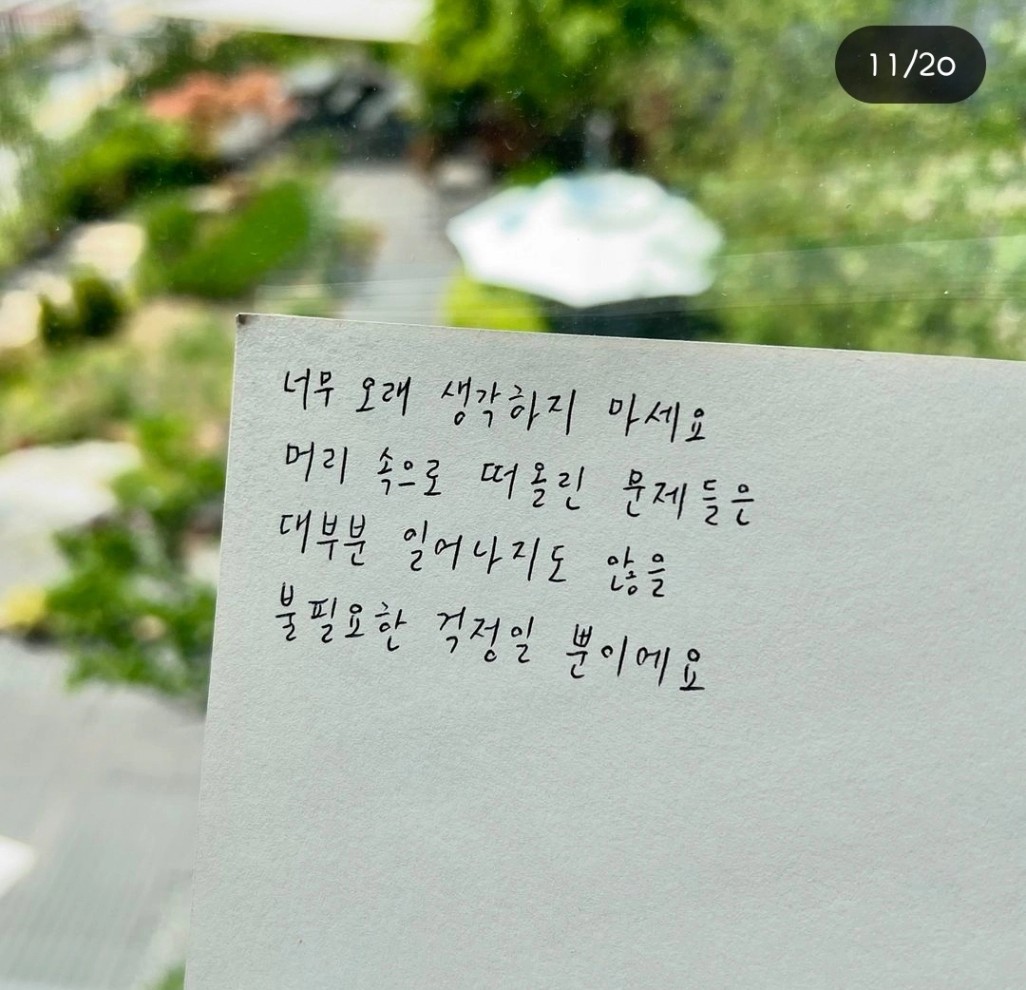 11/20
너무 오래 생각하지 마세요
머리 속으로 떠올린 문제들은
대부분 일어나지도 않을
불필요한 걱정일 뿐이에요